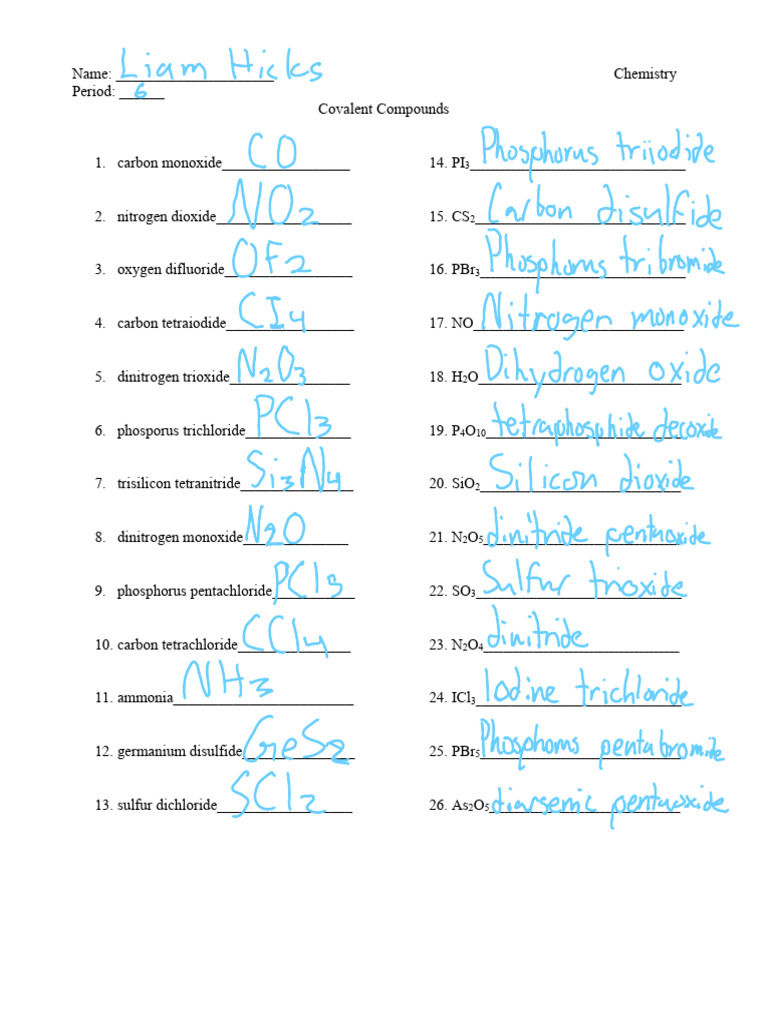 Name: Liam Hicks Chemistry
Period: 6
Covalent Compounds
1. carbon monoxide CO
2. nitrogen dioxide NO2
3. oxygen difluoride OF2
4. carbon tetraiodide CI4
5. dinitrogen trioxide N2O3
6. phosporus trichloride PCl3
7. trisilicon tetranitride Si3N4
8. dinitrogen monoxide N2O
9. phosphorus pentachloride PCl3
10. carbon tetrachloride CCl4
11. ammonia NH3
12. germanium disulfide GeS2
13. sulfur dichloride SCl2
14. PI3 Phosphorus triiodide
15. CS2 Carbon disulfide
16. PBr3 Phosphorus tribromide
17. NO Nitrogen monoxide
18. H2O Dihydrogen oxide
19. P4O10 tetraphosphide decoxide
20. SiO2 Silicon dioxide
21. N2O5 dinitride pentaoxide
22. SO3 Sulfur trioxide
23. N2O4 dinitride
24. ICl3 Iodine trichloride
25. PBr5 Phosphorus pentabromide
26. As2O5 diarsenic pentaoxide